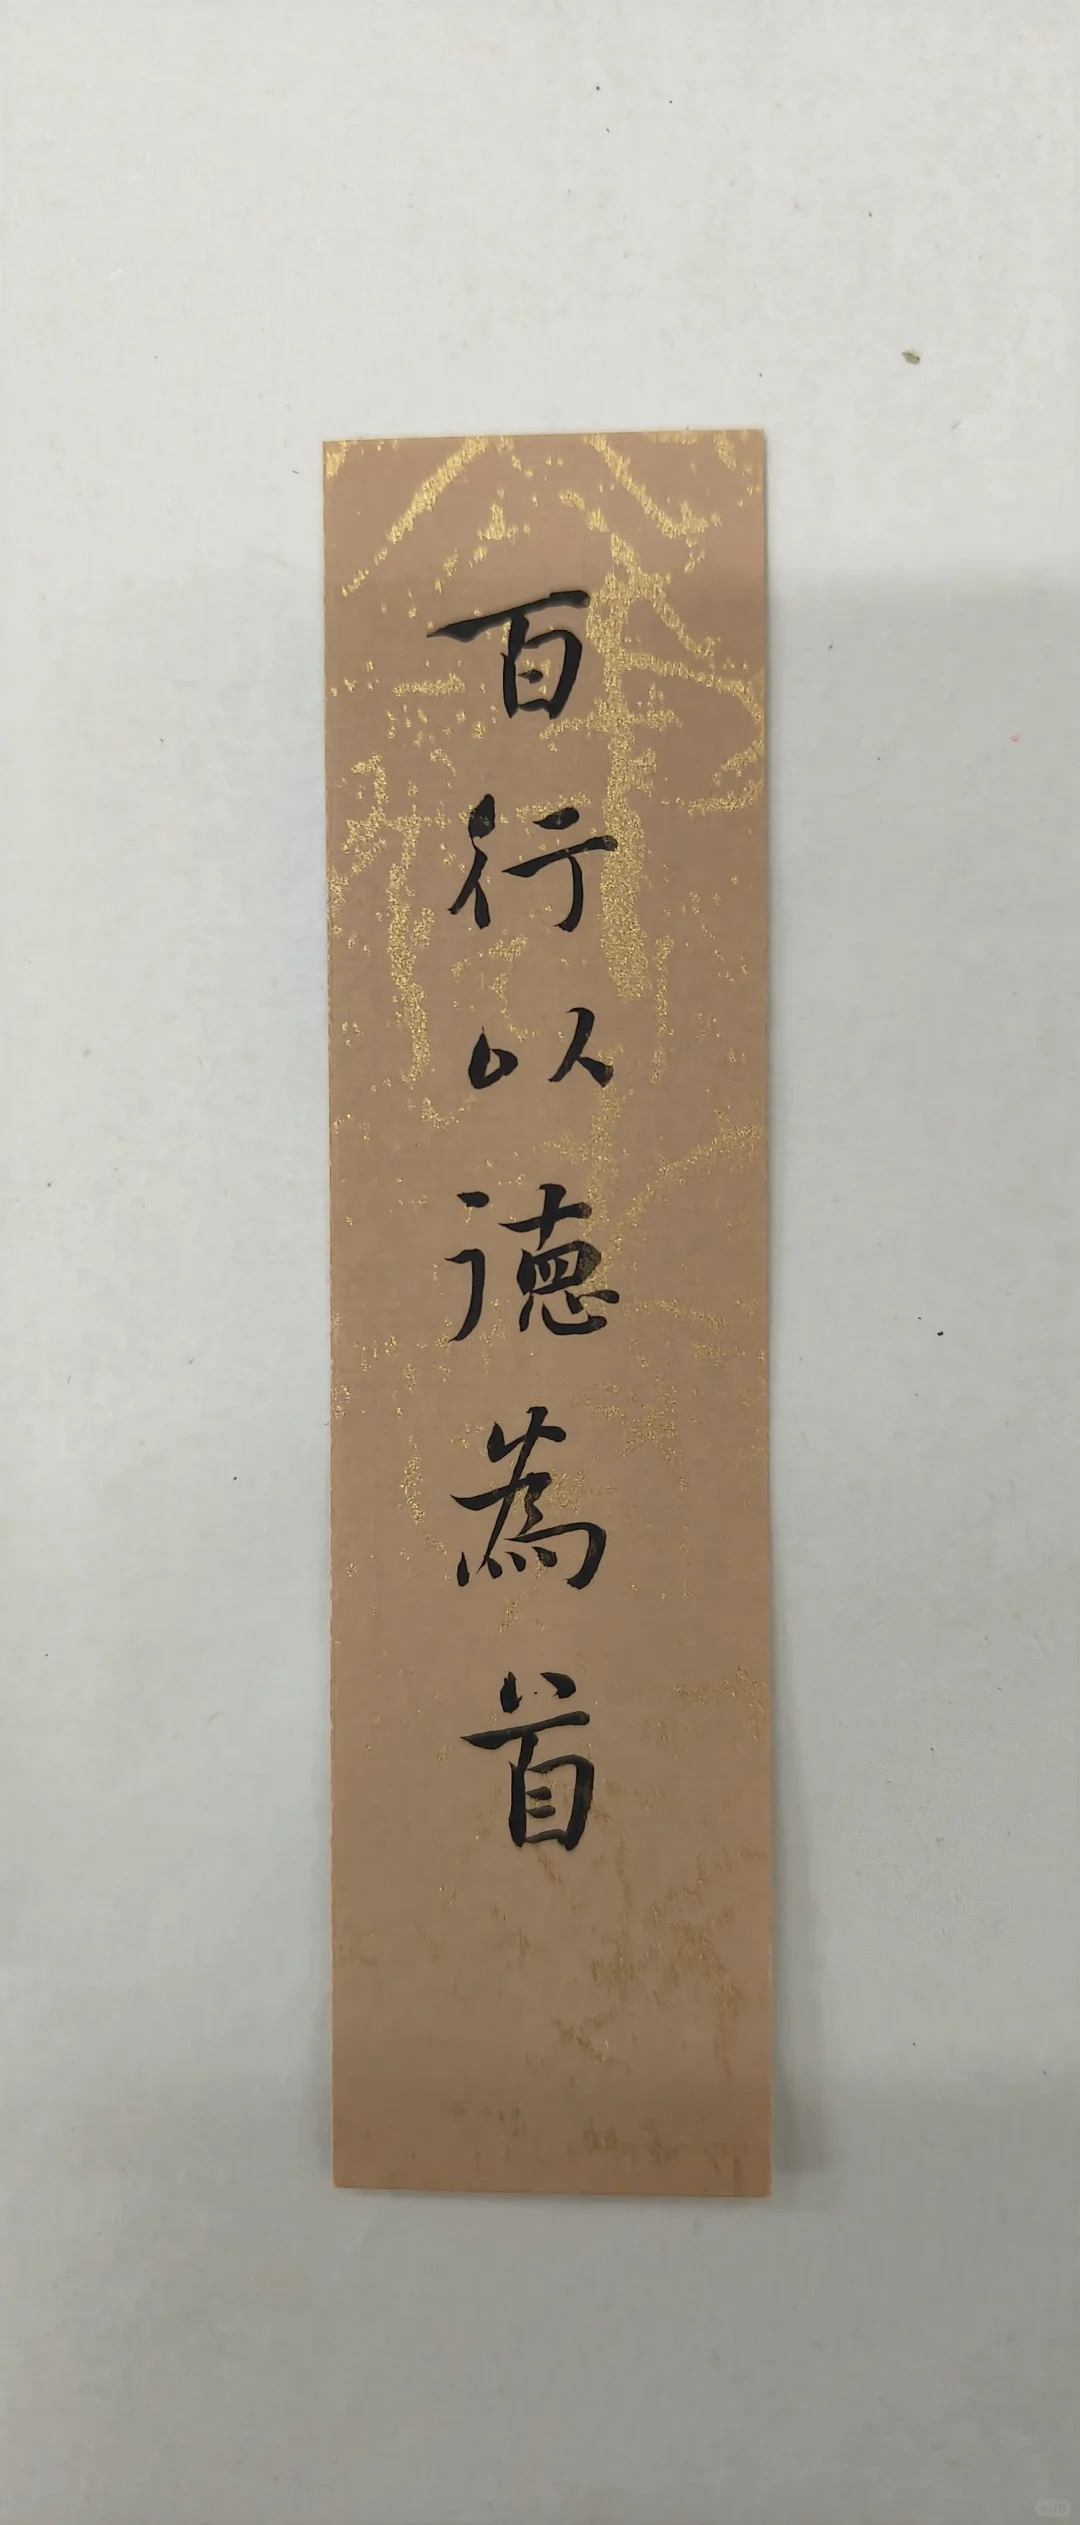 百行以德為首